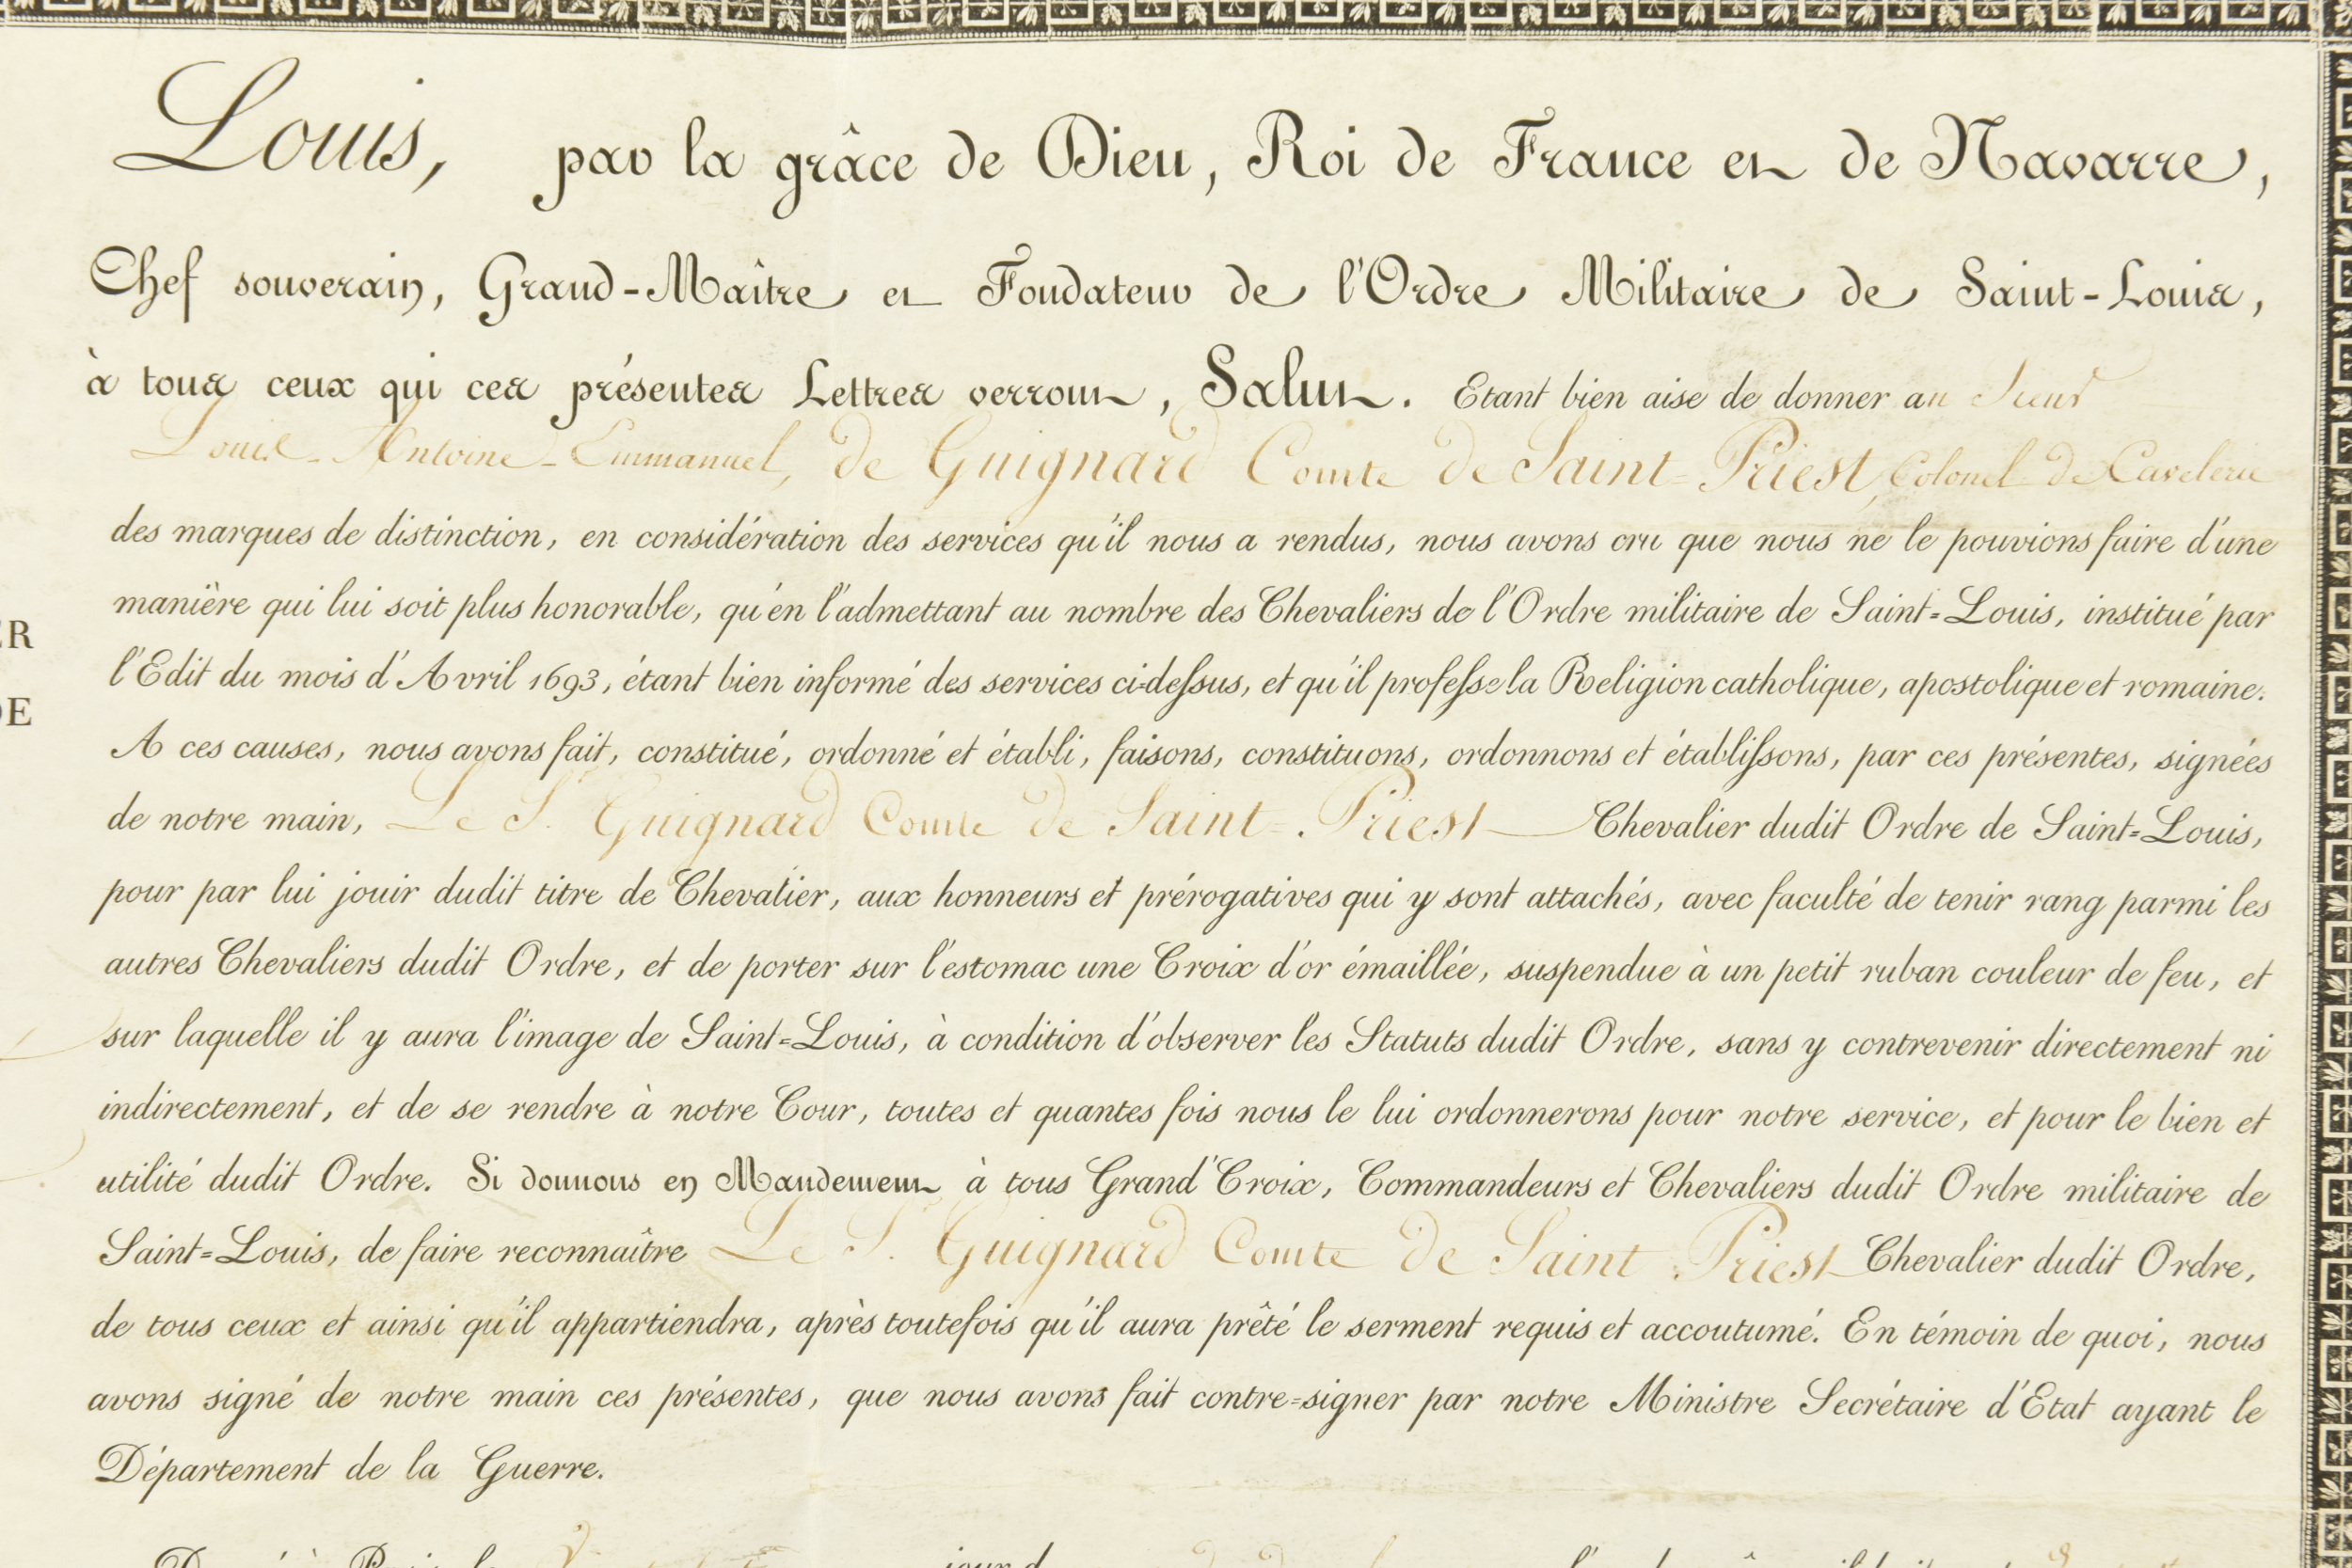 Louis, par la grâce de Dieu, Roi de France et de Navarre,
Chef souverain, Grand-Maître et Fondateur de l'Ordre Militaire de Saint-Louis,
à tous ceux qui ces présentes Lettres verront, Salut. Etant bien aise de donner au Sieur
Louis-Antoine-Emmanuel, de Guignard Comte de Saint-Priest, Colonel de Cavalerie
des marques de distinction, en considération des services qu'il nous a rendus, nous avons cru que nous ne le pouvions faire d'une
manière qui lui soit plus honorable, qu'en l'admettant au nombre des Chevaliers de l'Ordre militaire de Saint-Louis, institué par
ER
l'Edit du mois d'Avril 1693, étant bien informé des services ci-dessus, et qu'il professe la Religion catholique, apostolique et romaine.
DE
A ces causes, nous avons fait, constitué, ordonné et établi, faisons, constituons, ordonnons et établissons, par ces présentes, signées
de notre main, Le S. Guignard Comte de Saint-Priest Chevalier dudit Ordre de Saint-Louis,
pour par lui jouir dudit titre de Chevalier, aux honneurs et prérogatives qui y sont attachés, avec faculté de tenir rang parmi les
autres Chevaliers dudit Ordre, et de porter sur l'estomac une Croix d'or émaillée, suspendue à un petit ruban couleur de feu, et
sur laquelle il y aura l'image de Saint-Louis, à condition d'observer les Statuts dudit Ordre, sans y contrevenir directement ni
indirectement, et de se rendre à notre Cour, toutes et quantes fois nous le lui ordonnerons pour notre service, et pour le bien et
utilité dudit Ordre. Si donnons en Mandement à tous Grand'Croix, Commandeurs et Chevaliers dudit Ordre militaire de
Saint-Louis, de faire reconnaître Le S. Guignard Comte de Saint Priest Chevalier dudit Ordre,
de tous ceux et ainsi qu'il appartiendra, après toutefois qu'il aura prêté le serment requis et accoutumé. En témoin de quoi, nous
avons signé de notre main ces présentes, que nous avons fait contre-signer par notre Ministre Secrétaire d'Etat ayant le
Département de la Guerre.